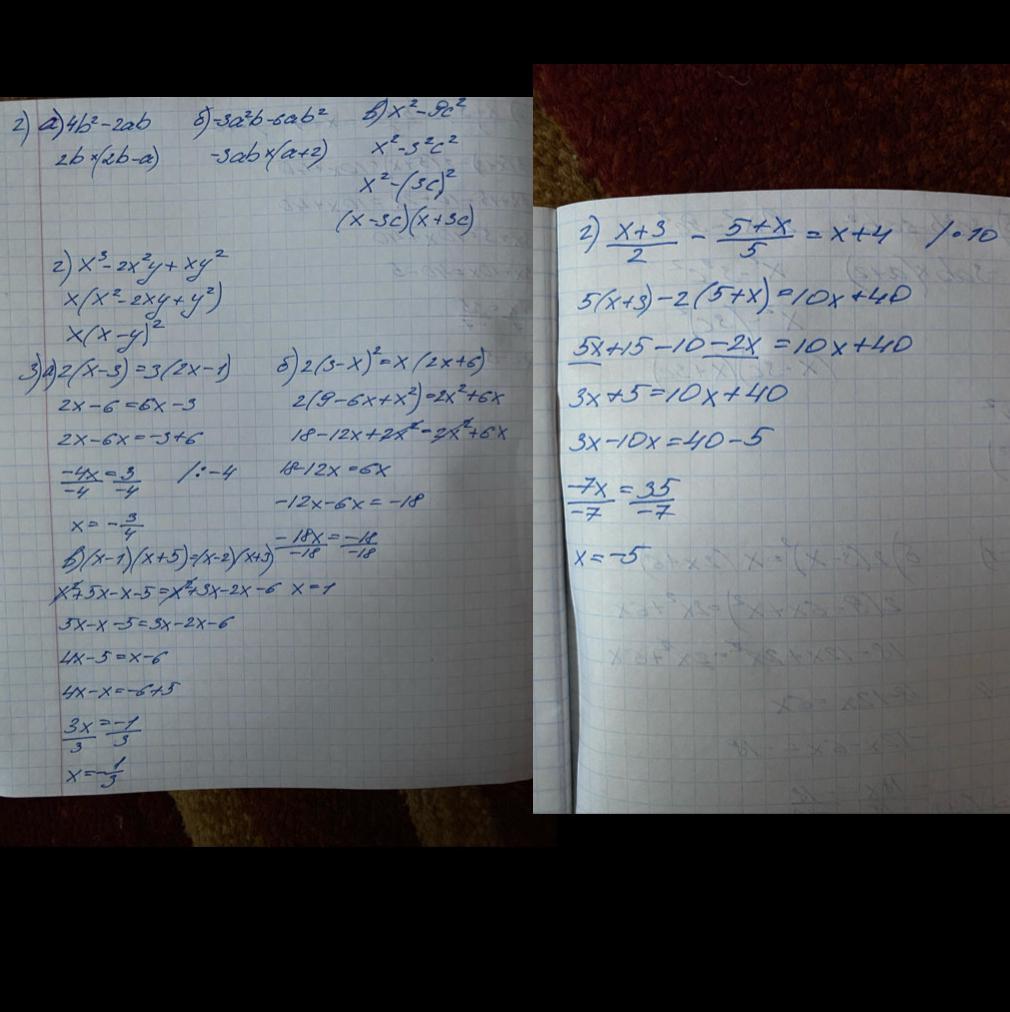 2) а) 4b² - 2ab
2b × (2b - a)
б) -3a²b - 6ab²
-3ab × (a + 2)
в) x² - 9c²
x² - 3²c²
x² - (3c)²
(x - 3c)(x + 3c)
г) x³ - 2x²y + xy²
x(x² - 2xy + y²)
x(x - y)²
3) а) 2(x - 3) = 3(2x - 1)
2x - 6 = 6x - 3
2x - 6x = -3 + 6
-4x/-4 = 3/-4 /: -4
x = -3/4
б) 2(3 - x)² = x(2x + 6)
2(9 - 6x + x²) = 2x² + 6x
18 - 12x + 2x² = 2x² + 6x
18 - 12x = 6x
-12x - 6x = -18
-18x/-18 = -18/-18
x = 1
в) (x - 1)(x + 5) = (x - 2)(x + 3)
x² + 5x - x - 5 = x² + 3x - 2x - 6
5x - x - 5 = 3x - 2x - 6
4x - 5 = x - 6
4x - x = -6 + 5
3x/3 = -1/3
x = -1/3
г) (x + 3)/2 - (5 + x)/5 = x + 4 /· 10
5(x + 3) - 2(5 + x) = 10x + 40
5x + 15 - 10 - 2x = 10x + 40
3x + 5 = 10x + 40
3x - 10x = 40 - 5
-7x/-7 = 35/-7
x = -5